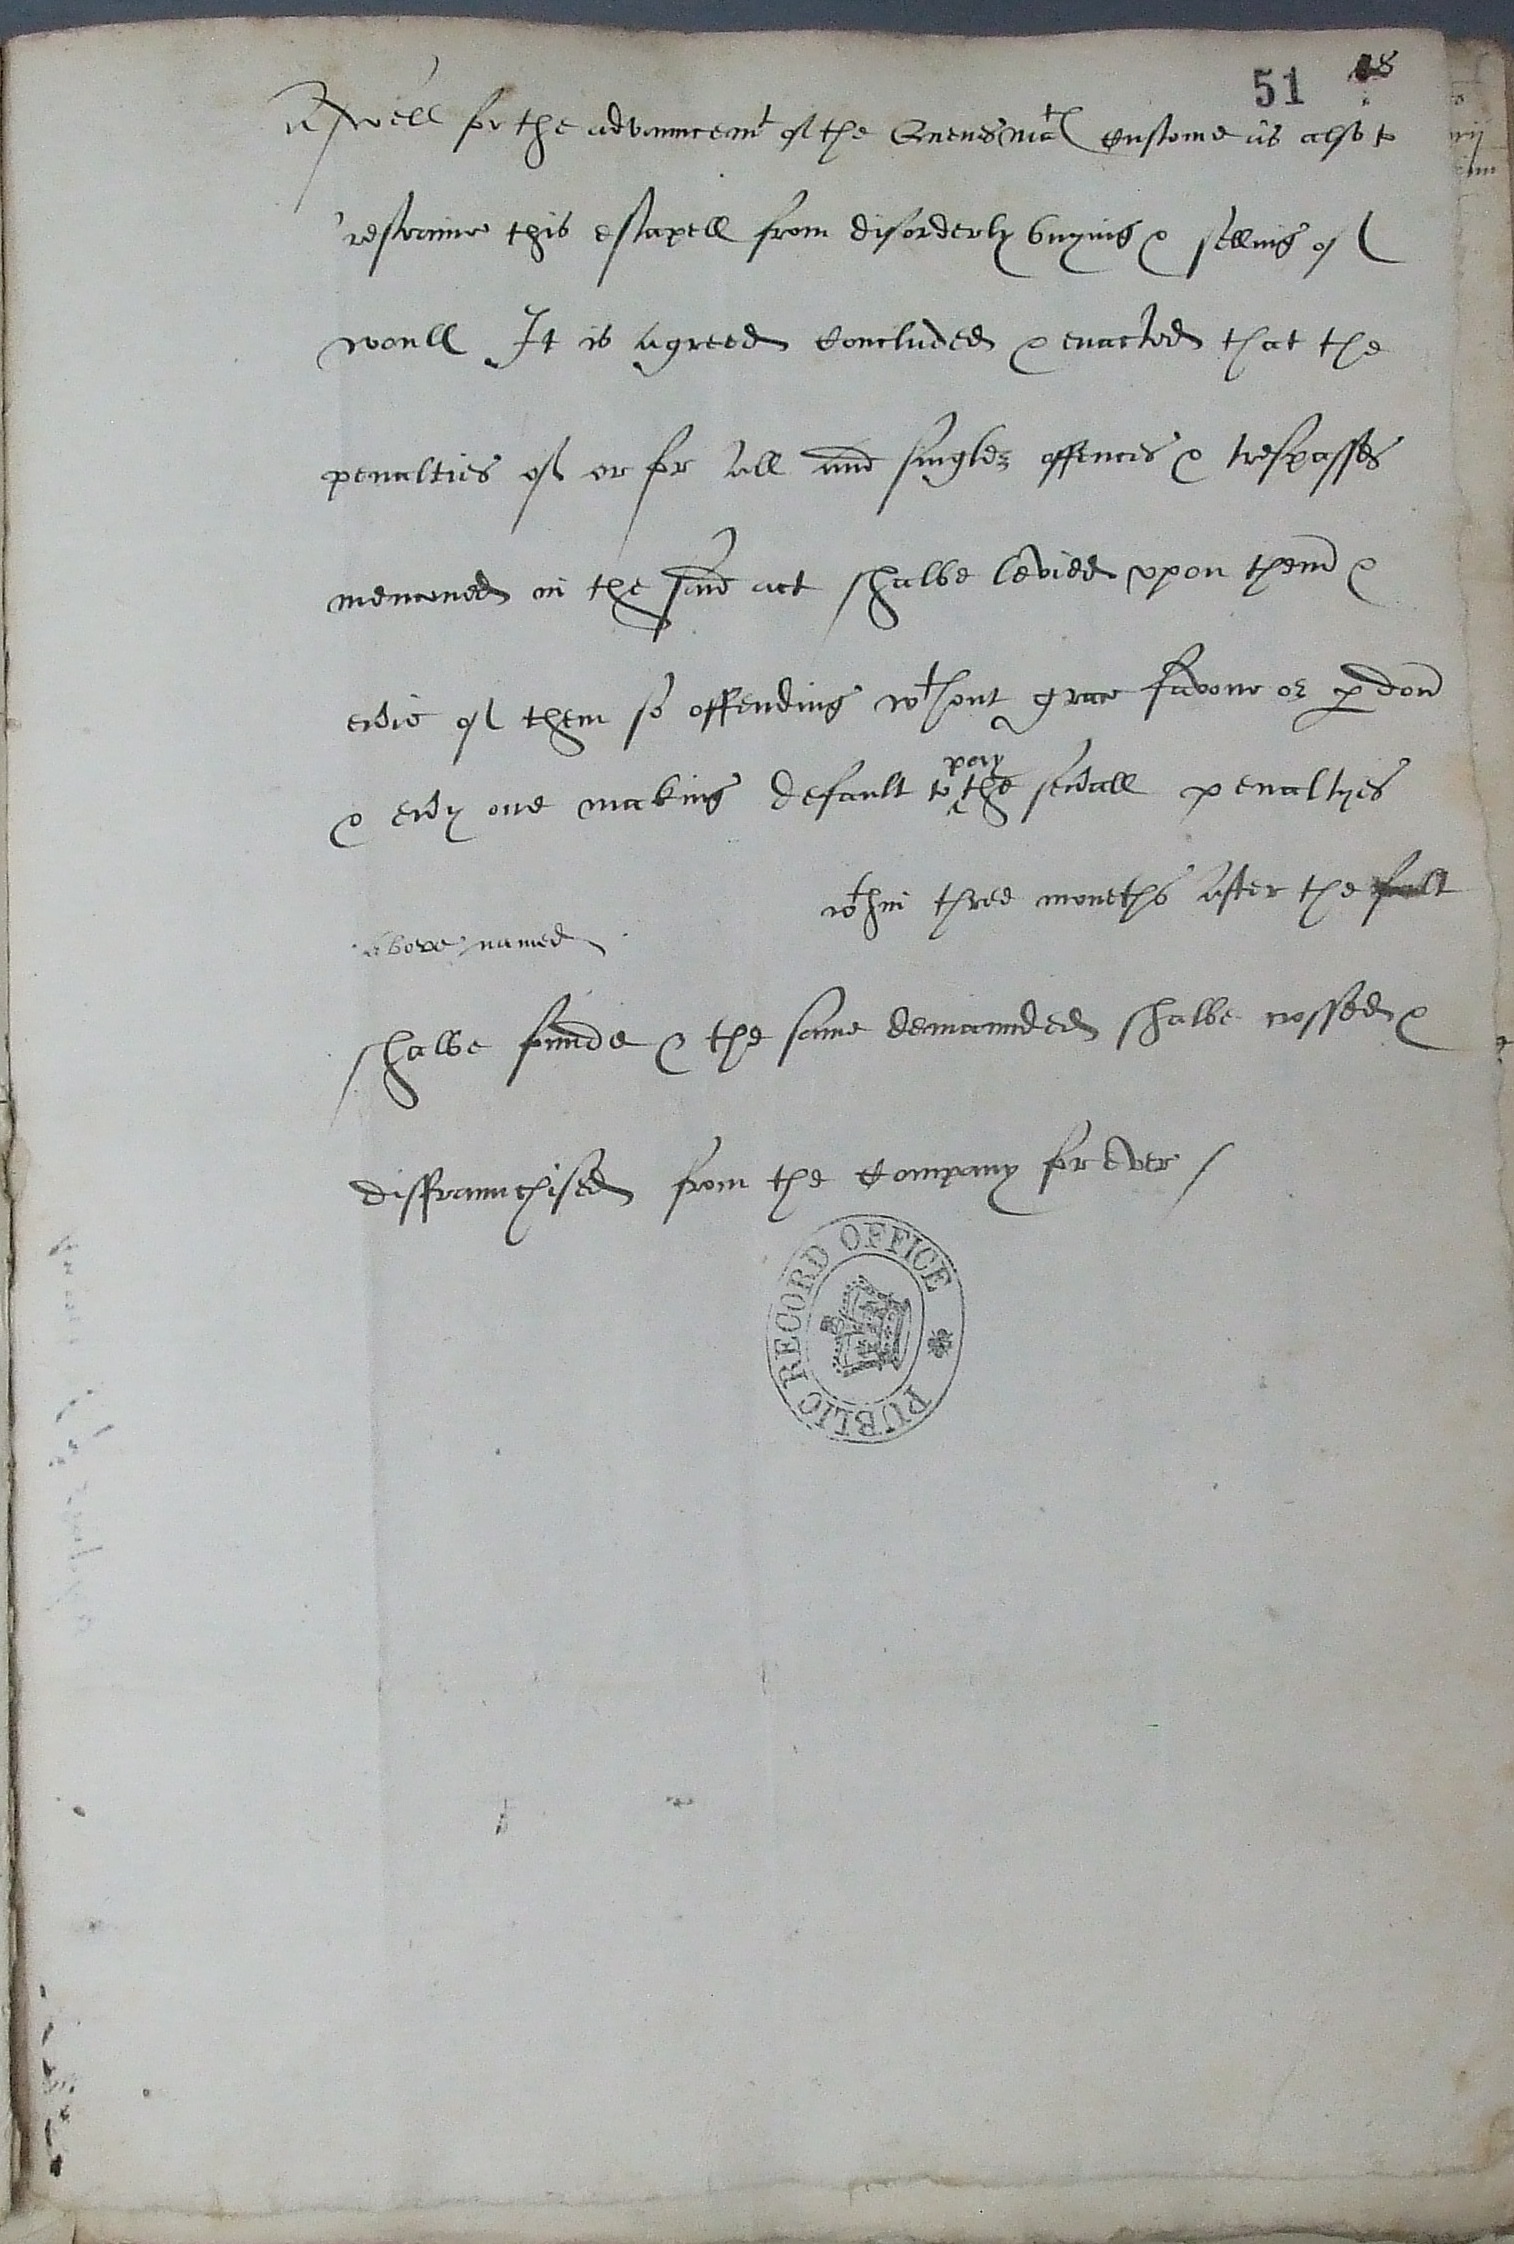 51 48
Aswell for the advauncemt of the Quenes Matl Custome as also to
restraine this estapell from disorderly buying & selling of
woull It is agreed Concluded & enacted that the
penalties of or for all and singler offences & trespasses
mencioned in the said act shalbe levied upon them &
evie of them so offending wthout grace favour or pdon
& evy one making default to the sevall penaltyes
pay
wthin three moneths after the falt
above named
shalbe founde & the same demaunded shalbe crossed &
disfraunchised from the Company for ever /
PUBLIC RECORD OFFICE